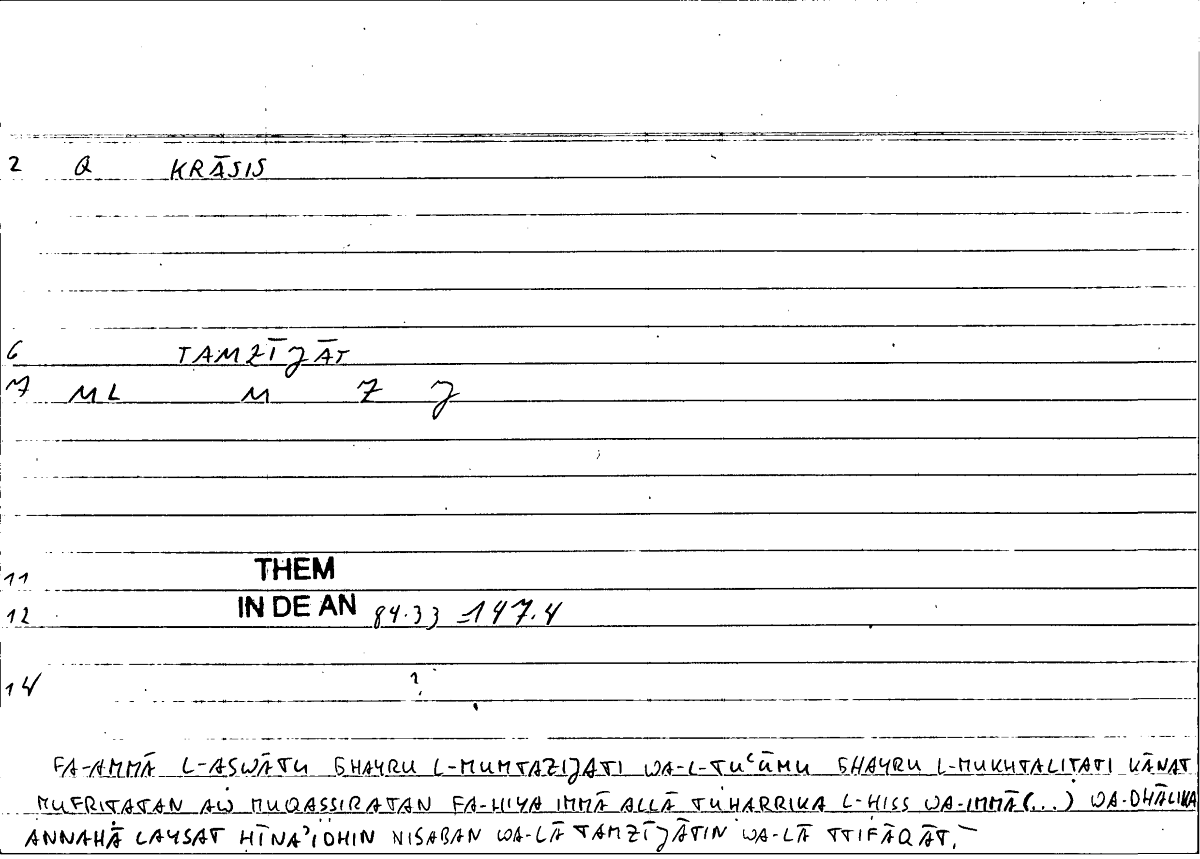 2 Q KRĀSIS
6 TAMZĪJĀT
7 ML M Z J
11 THEM
12 IN DE AN 84.33 = 147.4
14 1
FA-AMMĀ L-ASWĀTU GHAYRU L-MUMTAZIJATI WA-L-TUʿŪMU GHAYRU L-MUKHTALITATI KĀNAT
MUFRITATAN AW MUQASSIRATAN FA-HIYA IMMĀ ALLĀ TUHARRIKA L-HISS WA-IMMĀ (...) WA-DHĀLIKA
ANNAHĀ LAYSAT HĪNA'IDHIN NISABAN WA-LĀ TAMZĪJĀTIN WA-LĀ TTIFĀQĀT.